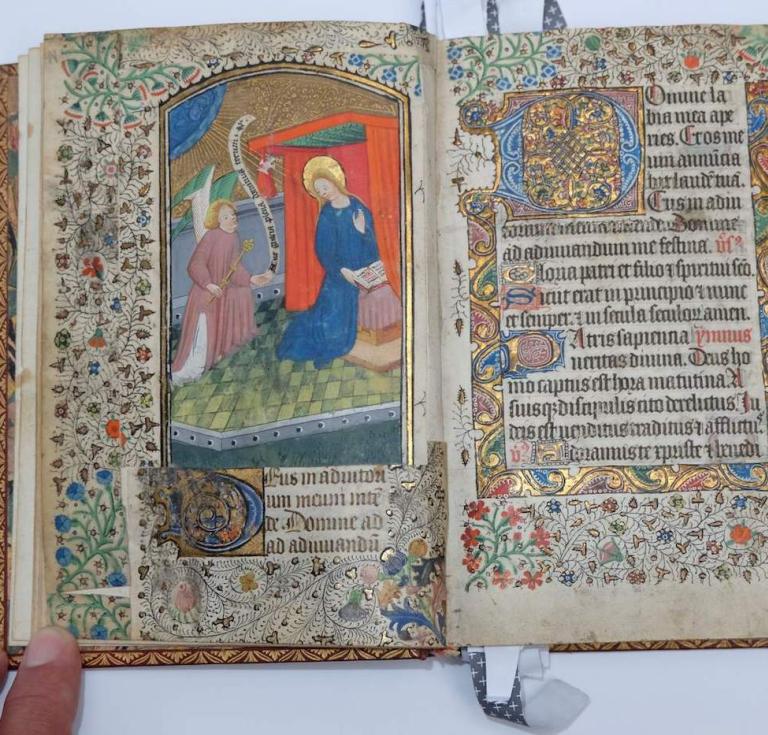 Aue gratia plena dominus tecum
Deus in adiutori
um meum inte
de Domine ad
ad adiuuandū
Domine la
bia mea ape
ries. Et os me
um annūcia
bit laudē tuā.
Deus in adiu
torium meum intende. Domine
ad adiuuandum me festina.
Gloria patri et filio ⁊ spiritui sco.
Sicut erat in principio ⁊ nunc
et semper. ⁊ in secula seculoꝝ amen.
Patris sapientia ymnus
ueritas diuina. Deus ho
mo captus est hora matutina. A
suisqꝫ discipulis cito derelictus. Iu
deis est uenditus traditus ⁊ afflictus
Adoramus te xpriste ⁊ benedi